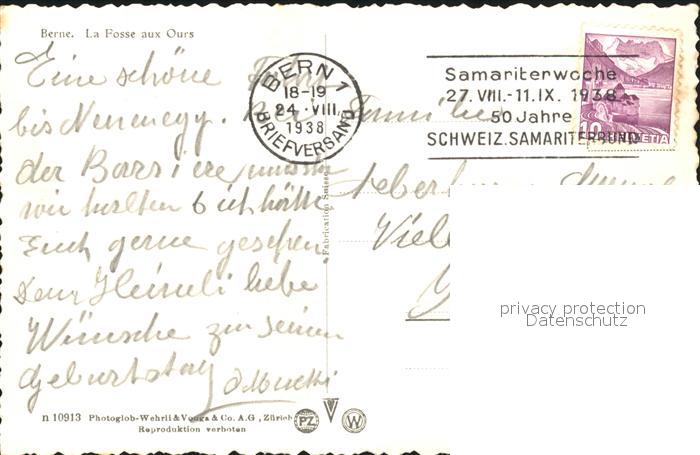 Berne. La Fosse aux Ours
Eine schöne
bis Neuenegg. bei
der Barriere mussten
wir halten & ich hätte
Euch gerne gesehen
Dem Heineli liebe
Wünsche zu seinem
Geburtstag
n 10913 Photoglob-Wehrli & Vouga & Co. A.G., Zürich
Reproduktion verboten
PZ W
Fabrication Suisse
BERN 1
18-19
24.VIII.
1938
BRIEFVERSAND
Samariterwoche
27. VIII.-11. IX. 1938
50 Jahre
SCHWEIZ. SAMARITERBUND
10 HELVETIA
Familie
privacy protection
Datenschutz